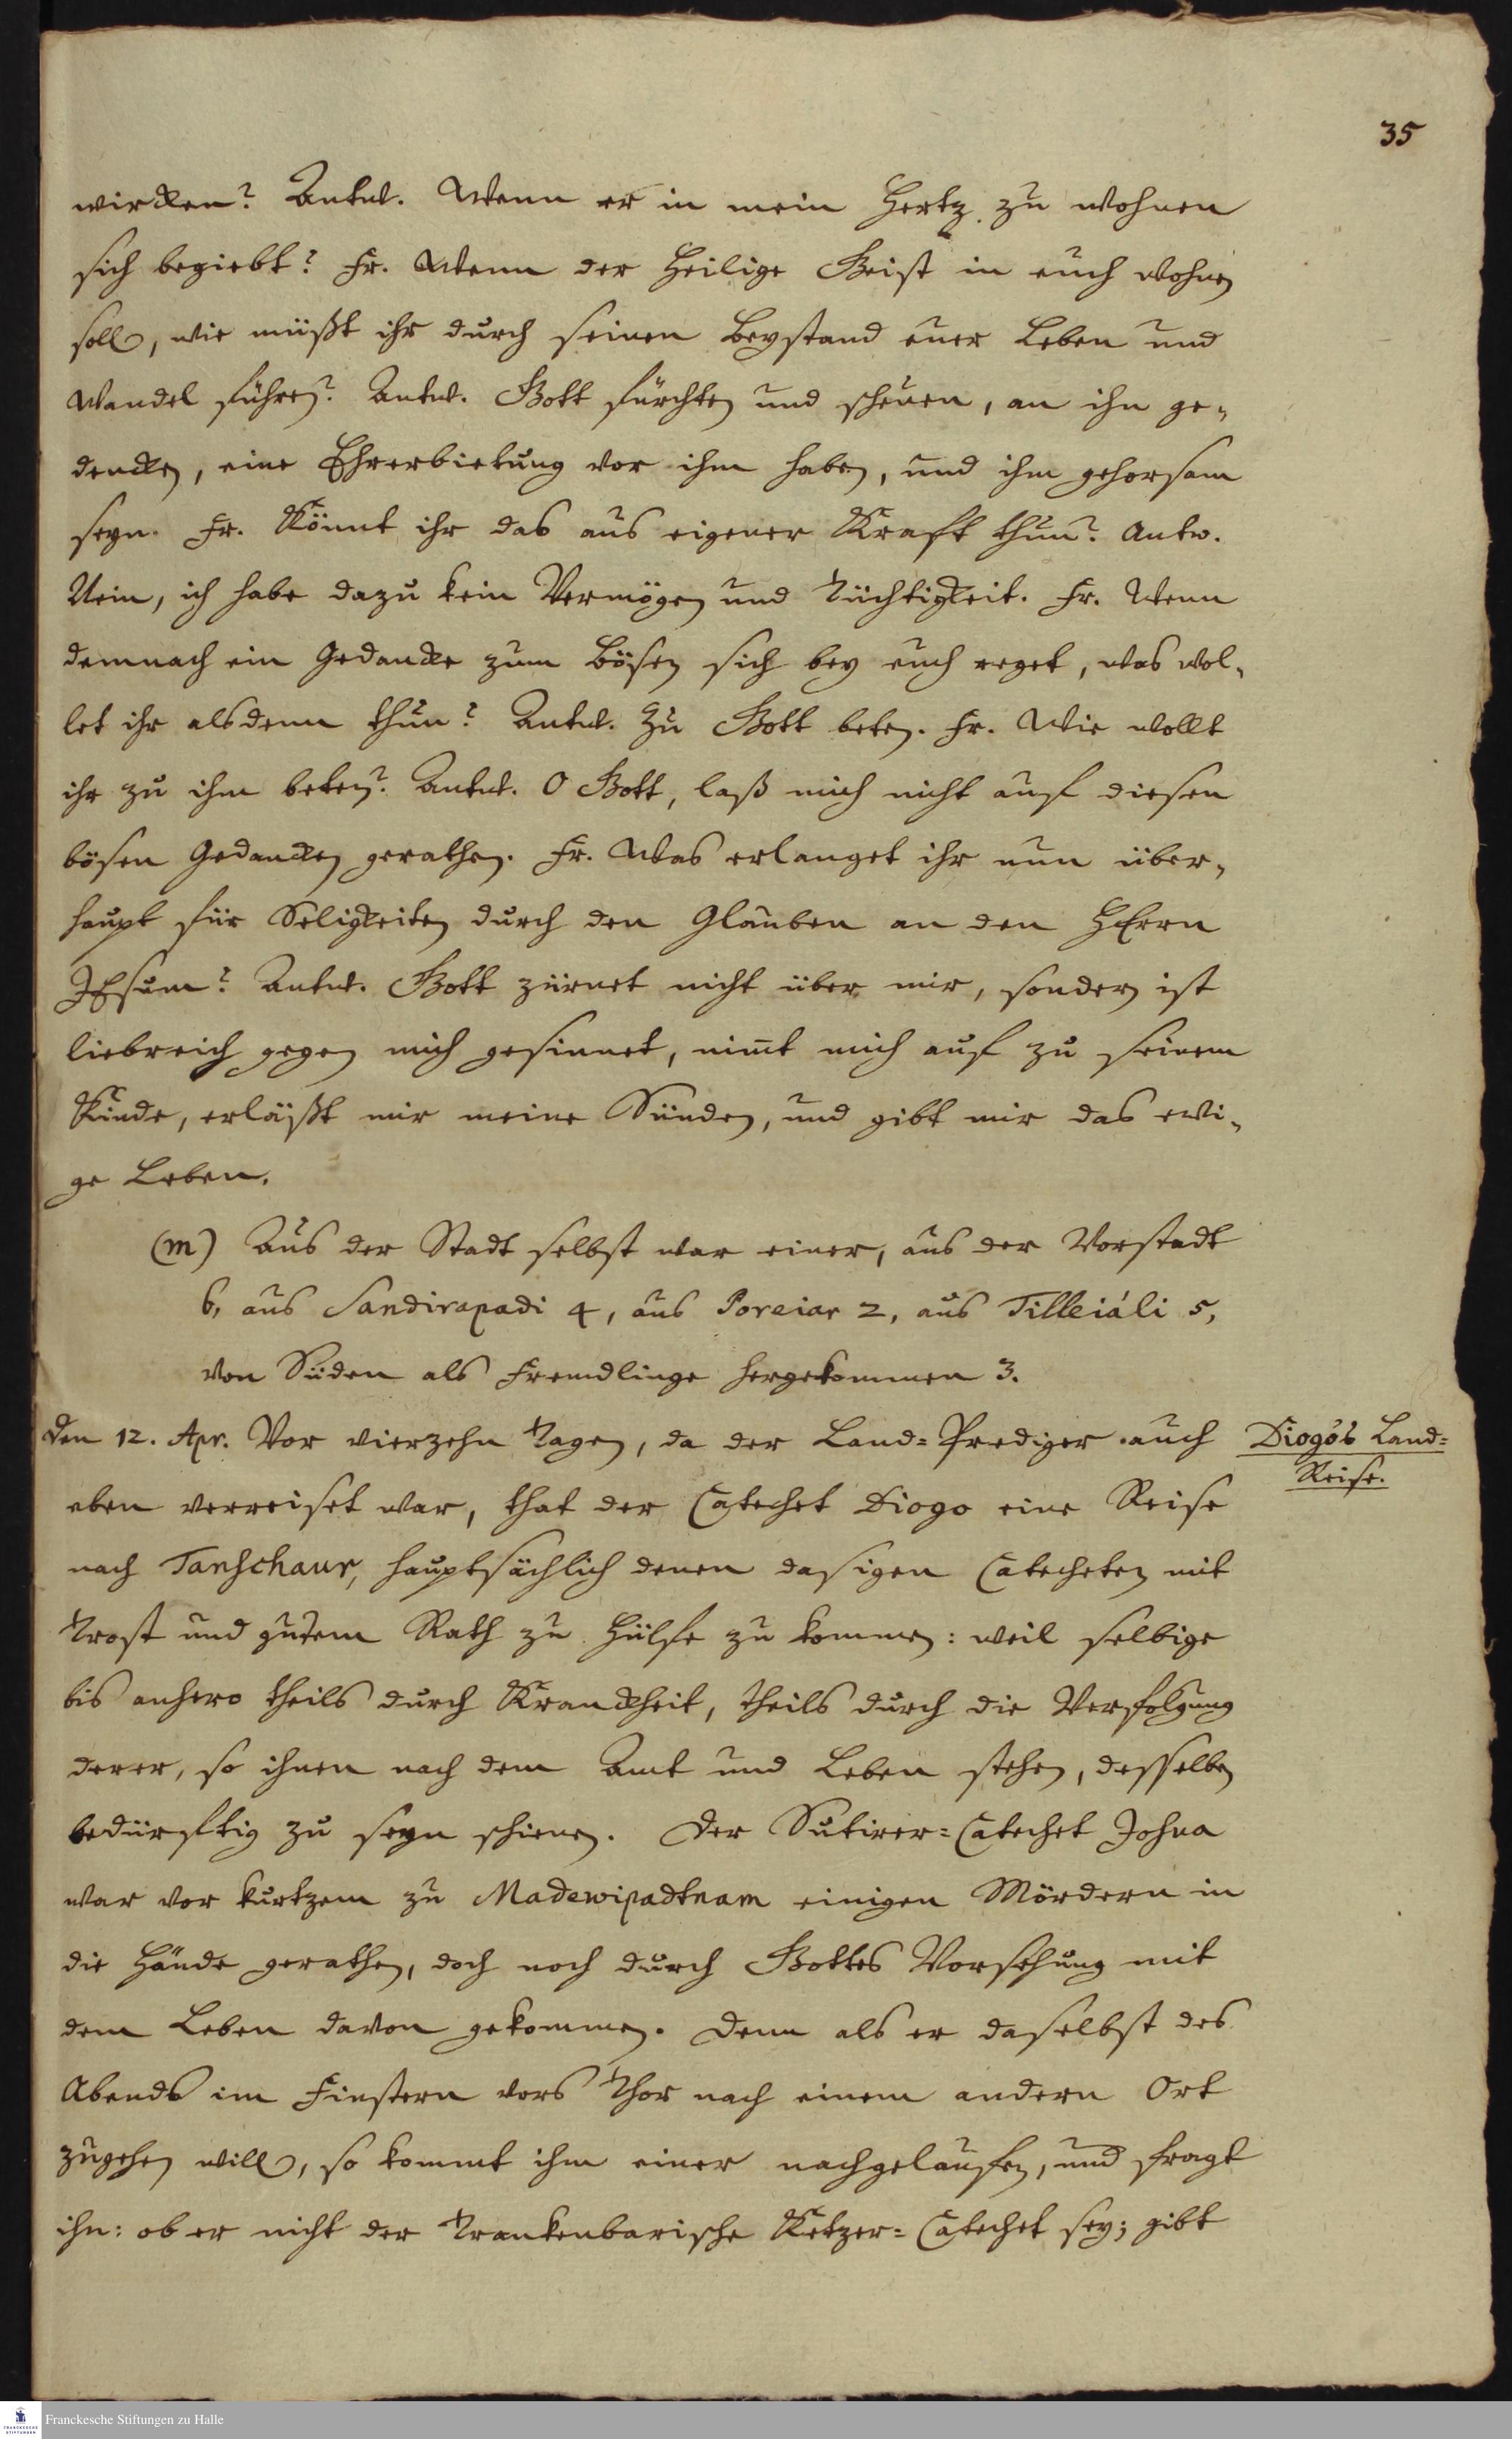 35
wircken? Antw. Wenn er in mein Hertz zu wohnen
sich begiebt? Fr. Wenn der Heilige Geist in euch wohnen
soll, wie müßt ihr durch seinen Beystand euer Leben und
Wandel führen? Antw. Gott fürchten und scheuen, an ihn ge-
dencken, eine Ehrerbietung vor ihm haben, und ihm gehorsam
seyn. Fr. Könnt ihr das aus eigener Krafft thun? Antw.
Nein, ich habe dazu kein Vermögen und Tüchtigkeit. Fr. Wenn
demnach ein Gedancke zum Bösen sich bey euch reget, was wol-
let ihr alsdenn thun? Antw. Zu Gott beten. Fr. Wie wollt
ihr zu ihm beten? Antw. O Gott, laß mich nicht auf diesen
bösen Gedancken gerathen. Fr. Was erlanget ihr nun über-
haupt für Seligkeiten durch den Glauben an den HErrn
JEsum? Antw. Gott zürnet nicht über mir, sondern ist
liebreich gegen mich gesinnet, nim̄t mich auf zu seinem
Kinde, erläßt mir meine Sünden, und gibt mir das ewi-
ge Leben.
(m) Aus der Stadt selbst war einer, aus der Vorstadt
6, aus Sandirapadi 4, aus Poreiar 2, aus Tilleiáli 5,
von Süden als Fremdlinge hergekommen 3.
Den 12. Apr. Vor vierzehn Tagen, da der Land-Prediger auch
Diogo's Land-
Reise.
eben verreiset war, that der Catechet Diogo eine Reise
nach Tanschaur, hauptsächlich denen dasigen Catecheten mit
Trost und gutem Rath zu Hülfe zu kommen: weil selbige
bis anhero theils durch Kranckheit, theils durch die Verfolgung
derer, so ihnen nach dem Amt und Leben stehen, desselben
bedürftig zu seyn schienen. Der Sutirer-Catechet Johna
war vor kurtzem zu Madewipadtnam einigen Mördern in
die Hände gerathen, doch noch durch Gottes Vorsehung mit
dem Leben davon gekommen. Denn als er daselbst des
Abends im Finstern vors Thor nach einem andern Ort
zugehen will, so kommt ihm einer nachgelaufen, und fragt
ihn: ob er nicht der Trankenbarische Ketzer-Catechet sey; gibt
Franckesche Stiftungen zu Halle